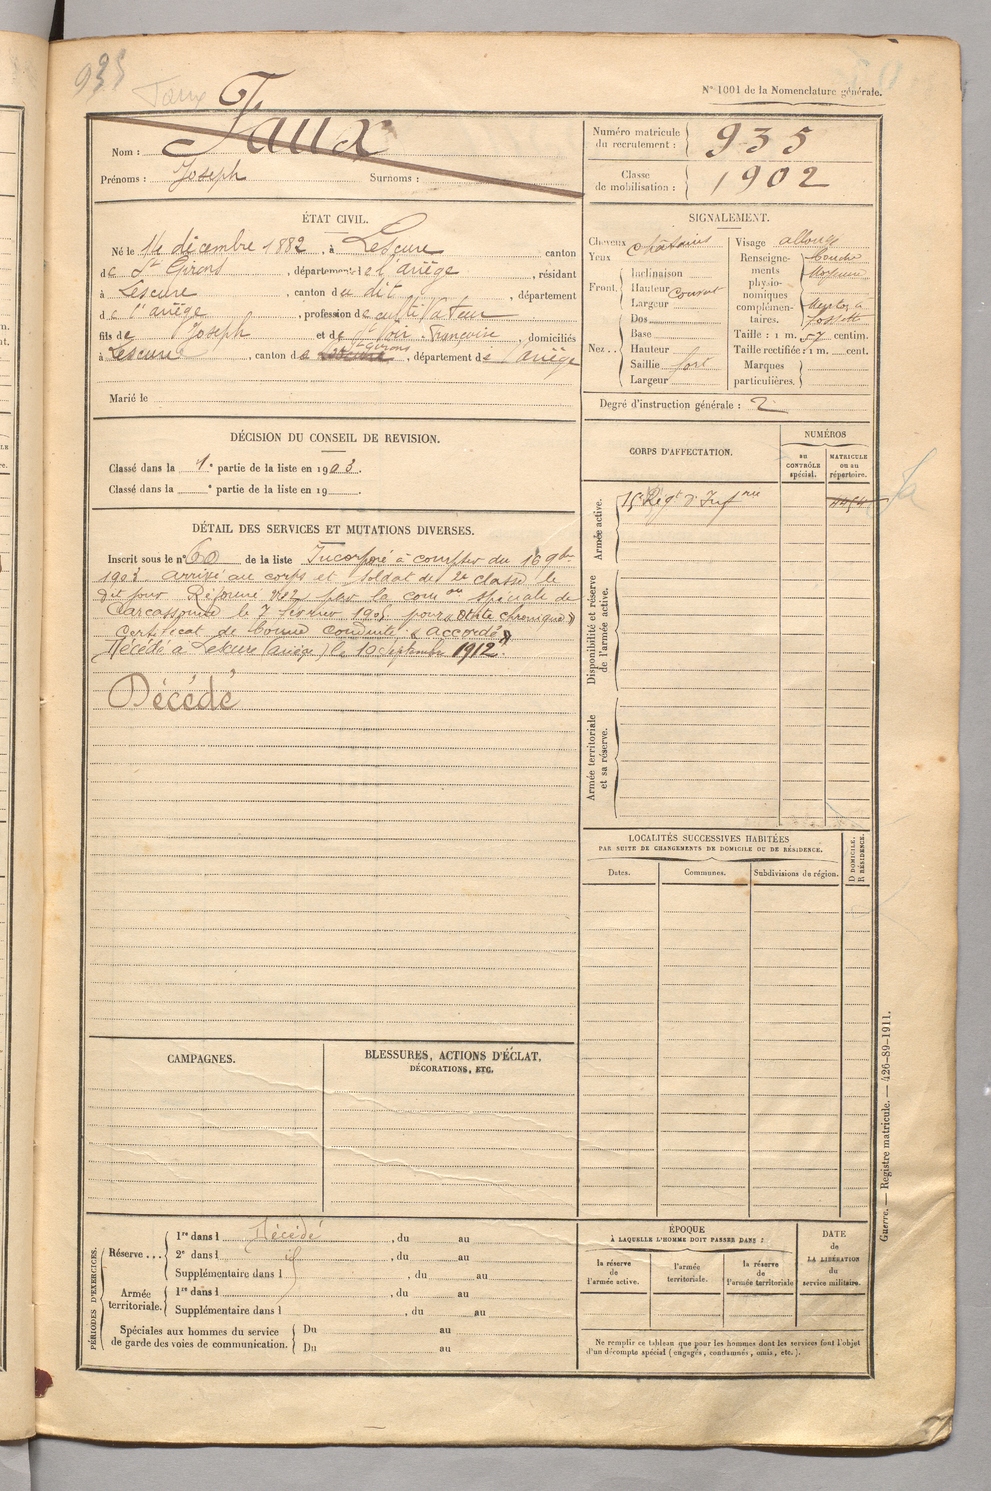 935
Faux
N° 1001 de la Nomenclature générale.
Nom : Faux
Prénoms : Joseph Surnoms :
Numéro matricule du recrutement : 935
Classe de mobilisation : 1902
ÉTAT CIVIL.
Né le 14 décembre 1882, à Lescure, canton
de St Girons, département de l'ariège, résidant
à Lescure, canton du dit, département
de l'ariège, profession de cultivateur
fils de Joseph et de Françoise, domiciliés
à Lescure, canton de St Girons, département de l'ariège
Marié le
SIGNALEMENT.
Cheveux châtains
Yeux
Front. Inclinaison
Hauteur Couvert
Largeur
Nez.. Dos
Base
Hauteur
Saillie fort
Largeur
Visage allongé
Renseignements physionomiques complémentaires. bouche moyenne
Menton à fossette
Taille : 1 m. 57 centim.
Taille rectifiée : 1 m. cent.
Marques particulières.
Degré d'instruction générale : 2
DÉCISION DU CONSEIL DE REVISION.
Classé dans la 1e partie de la liste en 1903.
Classé dans la e partie de la liste en 19 .
CORPS D'AFFECTATION.
NUMÉROS
au CONTRÔLE spécial.
MATRICULE ou au répertoire.
Armée active.
15e Régt d'Infrie
4454
Disponibilité et réserve de l'armée active.
Armée territoriale et sa réserve.
DÉTAIL DES SERVICES ET MUTATIONS DIVERSES.
Inscrit sous le n° 60 de la liste Incorporé à compter du 16 9bre
1903 arrivé au corps et soldat de 2e classe le
dit jour. Réformé n°2 par la comon spéciale de
Carcassonne le 7 février 1905 pour « Otite chronique »
Certificat de bonne conduite « accordé »
Décédé à Lescure (ariège) le 10 septembre 1912.
Décédé
LOCALITÉS SUCCESSIVES HABITÉES
PAR SUITE DE CHANGEMENTS DE DOMICILE OU DE RÉSIDENCE.
Dates. Communes. Subdivisions de région.
D DOMICILE.
R RÉSIDENCE.
CAMPAGNES.
BLESSURES, ACTIONS D'ÉCLAT,
DÉCORATIONS, ETC.
PÉRIODES D'EXERCICES.
Réserve... 1re dans l Décédé, du au
2e dans l, du au
Supplémentaire dans l, du au
Armée territoriale. 1re dans l, du au
Supplémentaire dans l, du au
Spéciales aux hommes du service de garde des voies de communication. Du au
Du au
ÉPOQUE
À LAQUELLE L'HOMME DOIT PASSER DANS :
la réserve de l'armée active.
l'armée territoriale.
la réserve de l'armée territoriale
DATE de LA LIBÉRATION du service militaire.
Ne remplir ce tableau que pour les hommes dont les services font l'objet
d'un décompte spécial (engagés, condamnés, omis, etc.).
Guerre. — Registre matricule. — 426-89-1911.